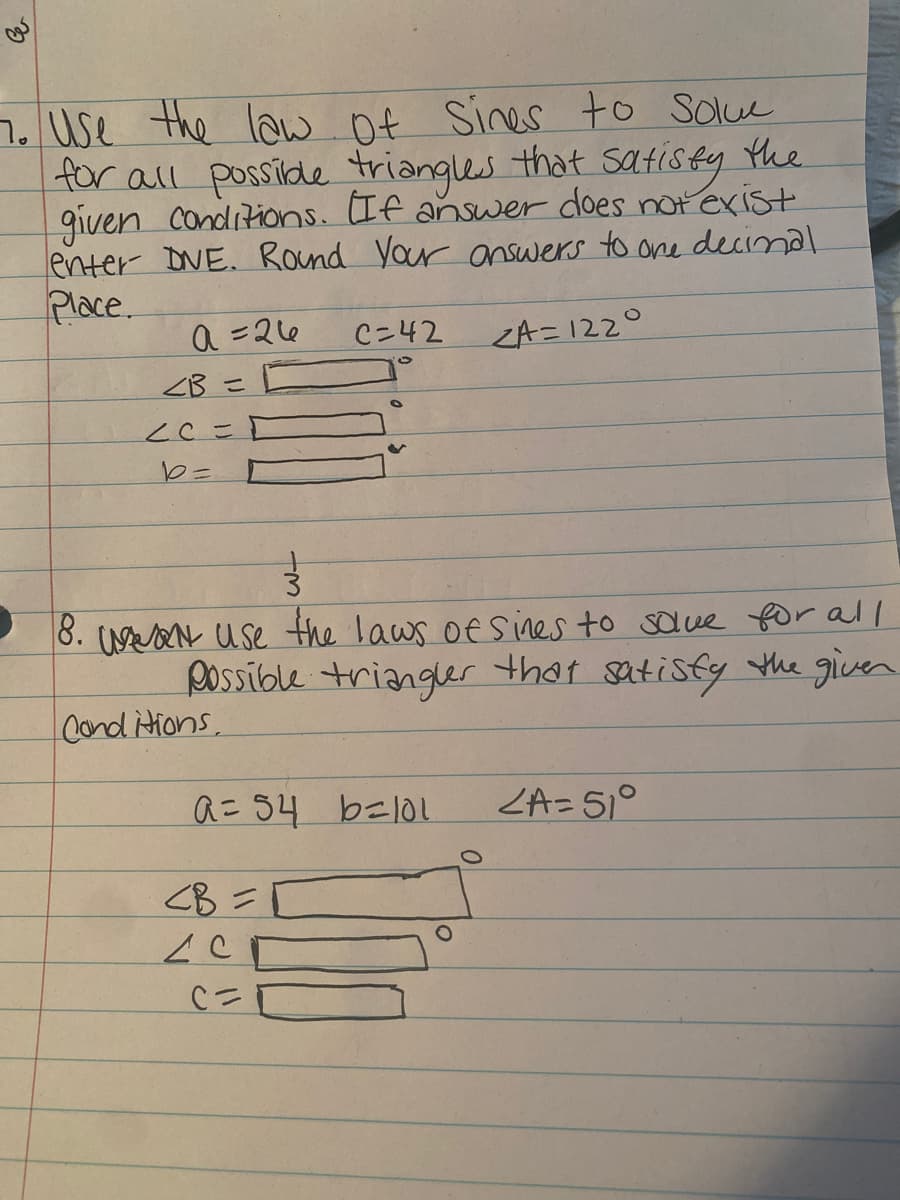 7. Use the law of Sines to Solve
for all possible triangles that satisfy the
given conditions. (If answer does not exist
enter DNE. Round Your answers to one decimal
Place.
a = 26 c = 42 ∠A = 122°
∠B = °
∠C = °
b =
1/3
8. use the laws of sines to solve for all
possible triangles that satisfy the given
Conditions.
a = 54 b = 101 ∠A = 51°
∠B = °
∠C °
C =